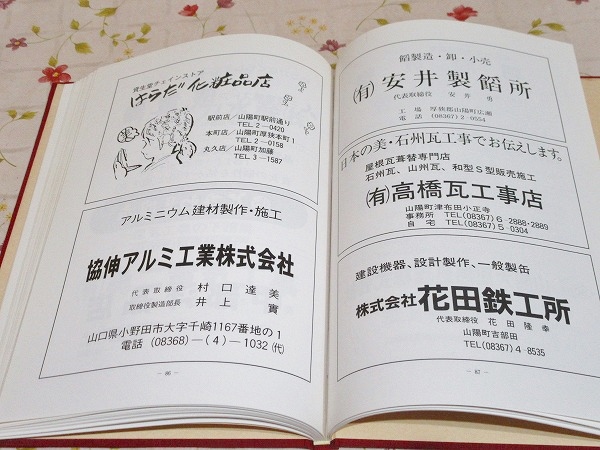 資生堂チェインストア
はらだ化粧品店
駅前店/山陽町駅前通り
TEL2—0420
本町店/山陽町厚狭本町1
TEL2—0158
丸久店/山陽町加藤
TEL3—1587
アルミニウム建材製作・施工
協伸アルミ工業株式会社
代表取締役 村口達美
取締役製造部長 井上實
山口県小野田市大字千崎1167番地の1
電話 (08368)—(4)—1032㈹
— 86 —
餡製造・卸・小売
㈲安井製餡所
代表取締役 安井勇
工場 厚狭郡山陽町広瀬
電話 (08367)2—0554
日本の美・石州瓦工事でお伝えします。
屋根瓦葺替専門店
石州瓦、山州瓦、和型S型販売施工
㈲高橋瓦工事店
山陽町津布田小正寺
事務所 TEL(08367)6-2888・2889
自宅 TEL(08367)5-0304
建設機器、設計製作、一般製缶
株式会社花田鉄工所
代表取締役 花田隆幸
山陽町吉部田
TEL(08367)4-8535
— 87 —